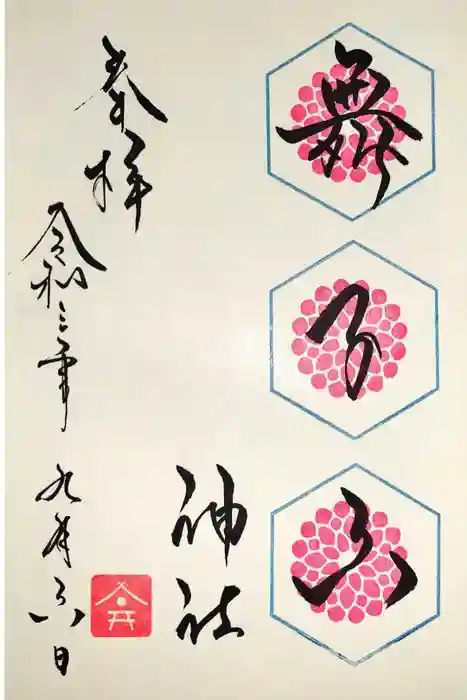 舞子六
神社
奉拝
令和三年 九月六日